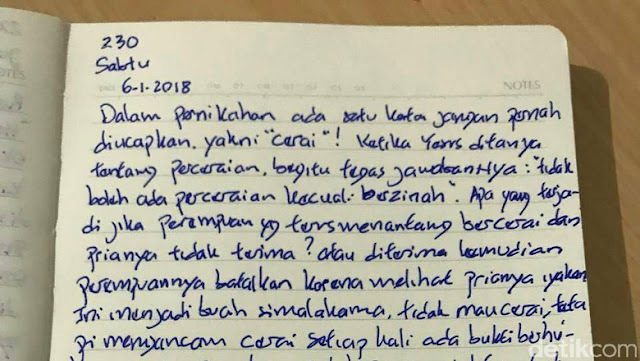 230
Sabtu
6-1-2018
NOTES
Dalam pernikahan ada satu kata jangan pernah
diucapkan, yakni "cerai"! Ketika Yesus ditanya
tentang perceraian, begitu tegas jawabannya: "tidak
boleh ada perceraian kecuali berzinah". Apa yang terja-
di jika perempuan yg terus menantang bercerai dan
prianya tidak terima? atau diterima kemudian
perempuannya batalkan karena melihat prianya yakin
Ini menjadi buah simalakama, tidak mau cerai, teta
pi mengancam cerai setiap kali ada bukti berhu-
detikcom